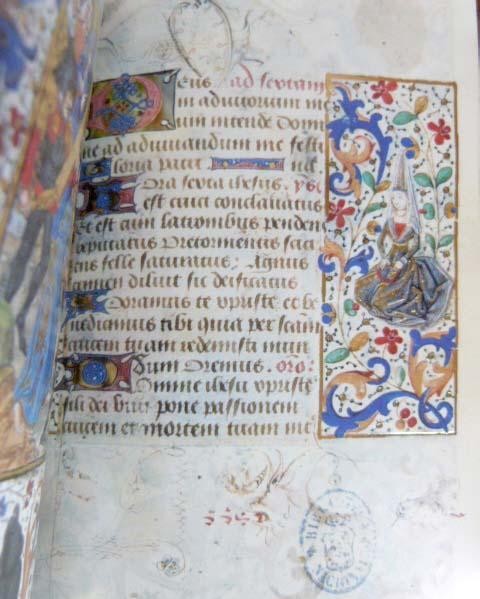 eus, ad sextam
in adiutorium me
um intende Domi
ne ad adiuuandum me festi
loria patri
ora sexta ihesus. yso
est cruci conclauatus
Et est cum latronibus penden
deputatus Pre tormentis siti
ens felle saturatus. Agnus
crimen diluit sic deificatus
Doramus te xpriste et be
nedicimus tibi Quia per scam
crucem tuam redemisti mun
dum Oremus. oro.
Domine ihesu xpriste
fili dei viui pone passionem
crucem et mortem tuam